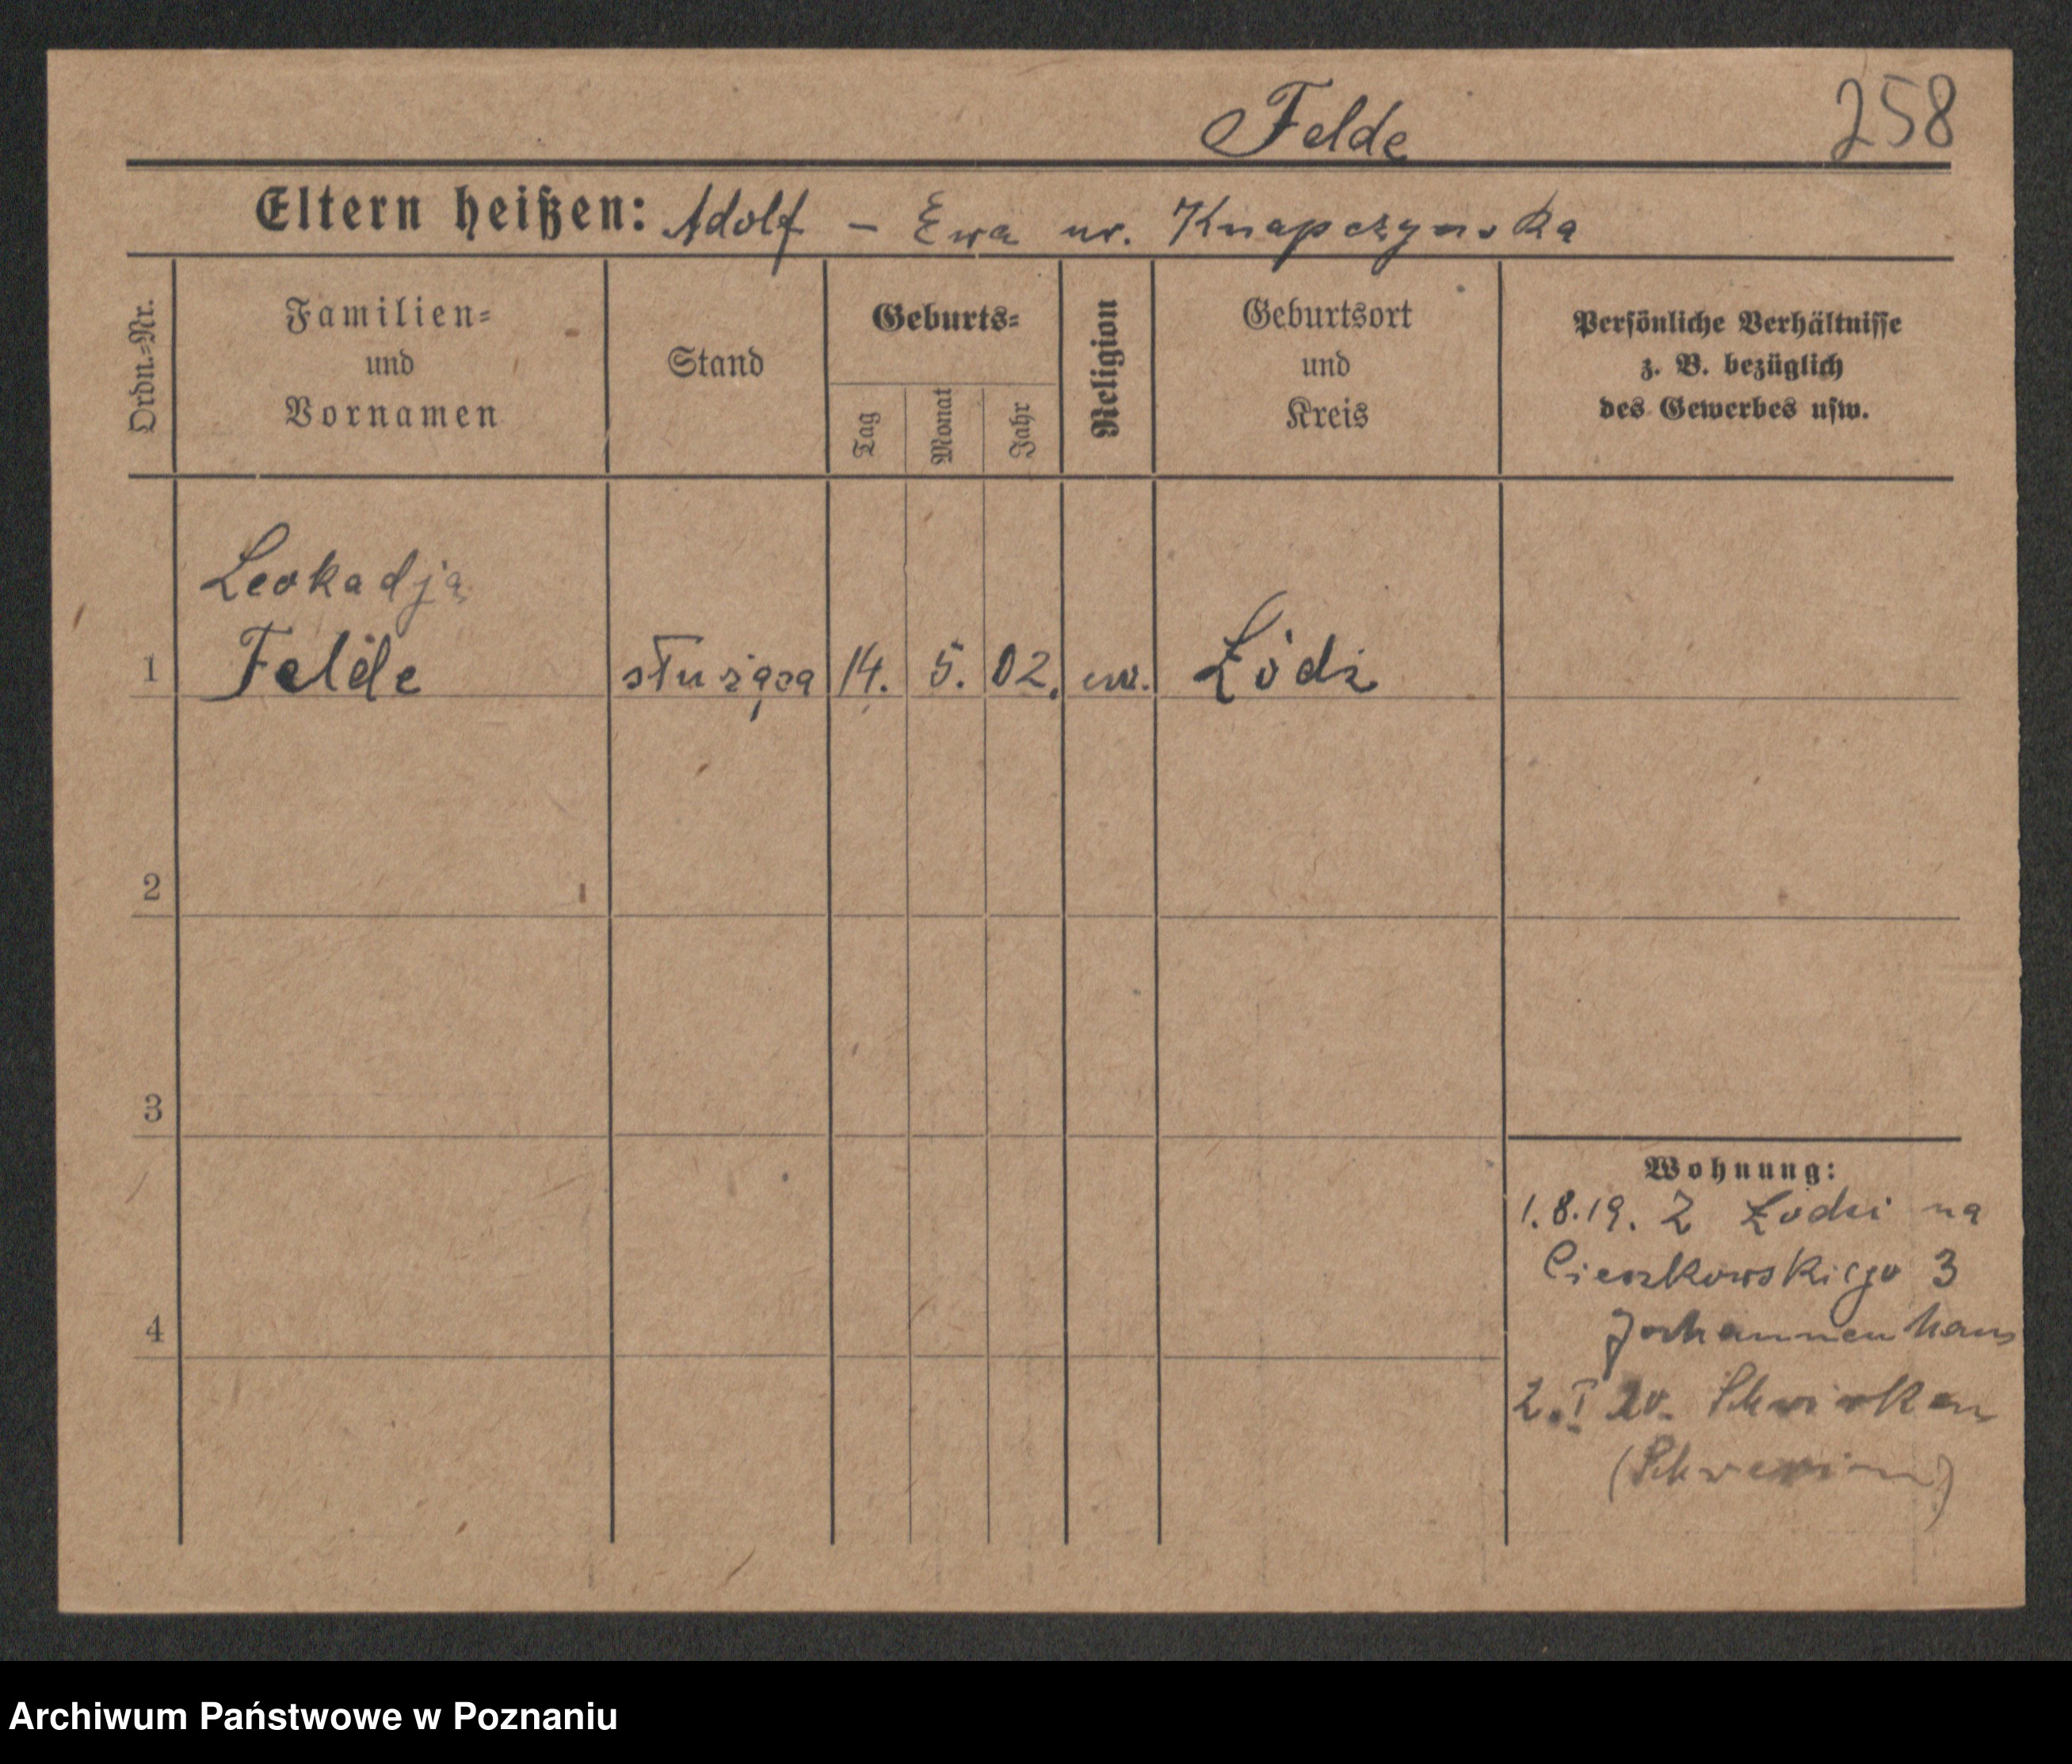 Felde 258
Eltern heißen: Adolf – Ewa ur. Knapczynska
Ordn.=Nr.
Familien=
und
Vornamen
Stand
Geburts=
Tag
Monat
Jahr
Religion
Geburtsort
und
Kreis
Persönliche Verhältnisse
z. B. bezüglich
des Gewerbes usw.
Leokadja
1 Felde służąca 14. 5. 02. ew. Łódź
2
3
4
Wohnung:
1.8.19. Z Łodzi na
Cieszkowskiego 3
Johannenhaus
2.I 20.
(Schwerin)
Archiwum Państwowe w Poznaniu